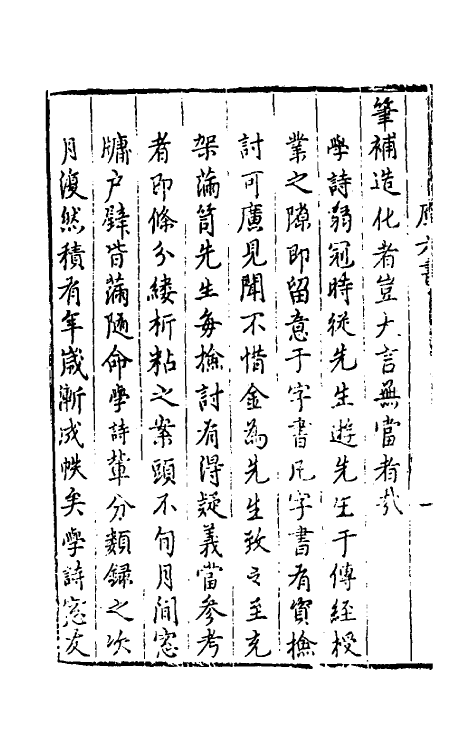 筆補造化者豈大言無當者哉
學詩弱冠時從先生遊先生于傳經授
業之隙即留意于字書凡字書有資撿
討可廣見聞不惜金為先生致之至充
架滿笥先生每撿討有得疑義當參考
者即條分縷析粘之案頭不旬月間窓
牗户壁皆滿随命學詩輩分類録之次
月復然積有年嵗漸成帙矣學詩窓友